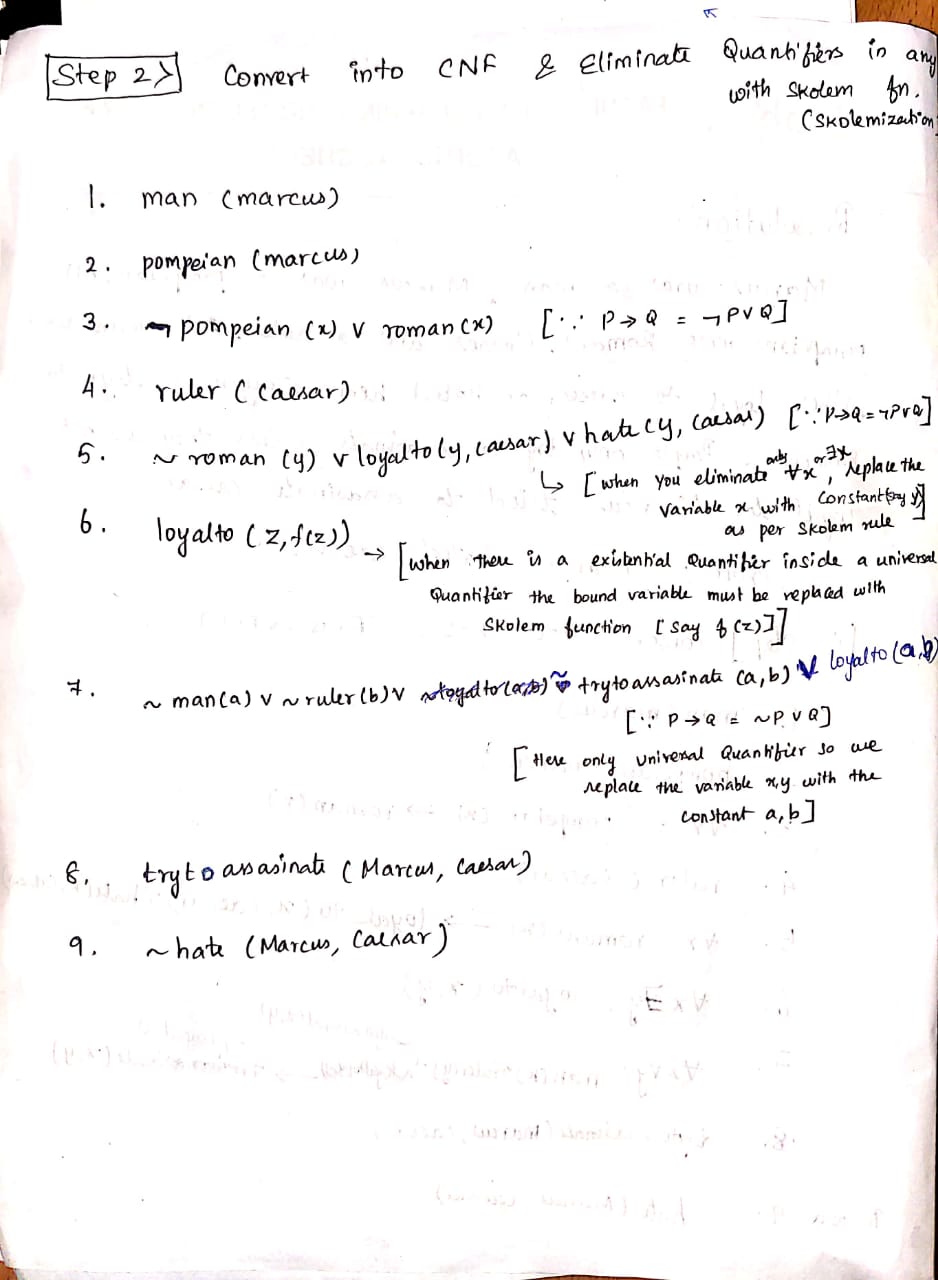 Step 2> Convert into CNF & Eliminate Quantifiers in any
with Skolem fn.
(Skolemization
1. man (marcus)
2. pompeian (marcus)
3. ¬ pompeian (x) V roman (x) [∵ P → Q = ¬P V Q]
4. ruler ( Caesar)
5. ~ roman (y) v loyalto (y, caesar) v hate (y, caesar) [∵ P→Q = ¬P v Q]
↳ [when you eliminate only ∀x or ∃x, replace the
variable x with constant (say y)]
as per Skolem rule
6. loyalto (z, f(z))
→ [when there is a existential Quantifier inside a universal
Quantifier the bound variable must be replaced with
Skolem function [say f(z)]]
7. ~ man(a) v ~ ruler (b) v ~ trytoassasinate (a,b) V loyalto (a,b)
[∵ P → Q = ~P V Q]
[Here only universal Quantifier so we
replace the variable x,y with the
constant a,b]
8. trytoassasinate ( Marcus, Caesar)
9. ~ hate (Marcus, Caesar)